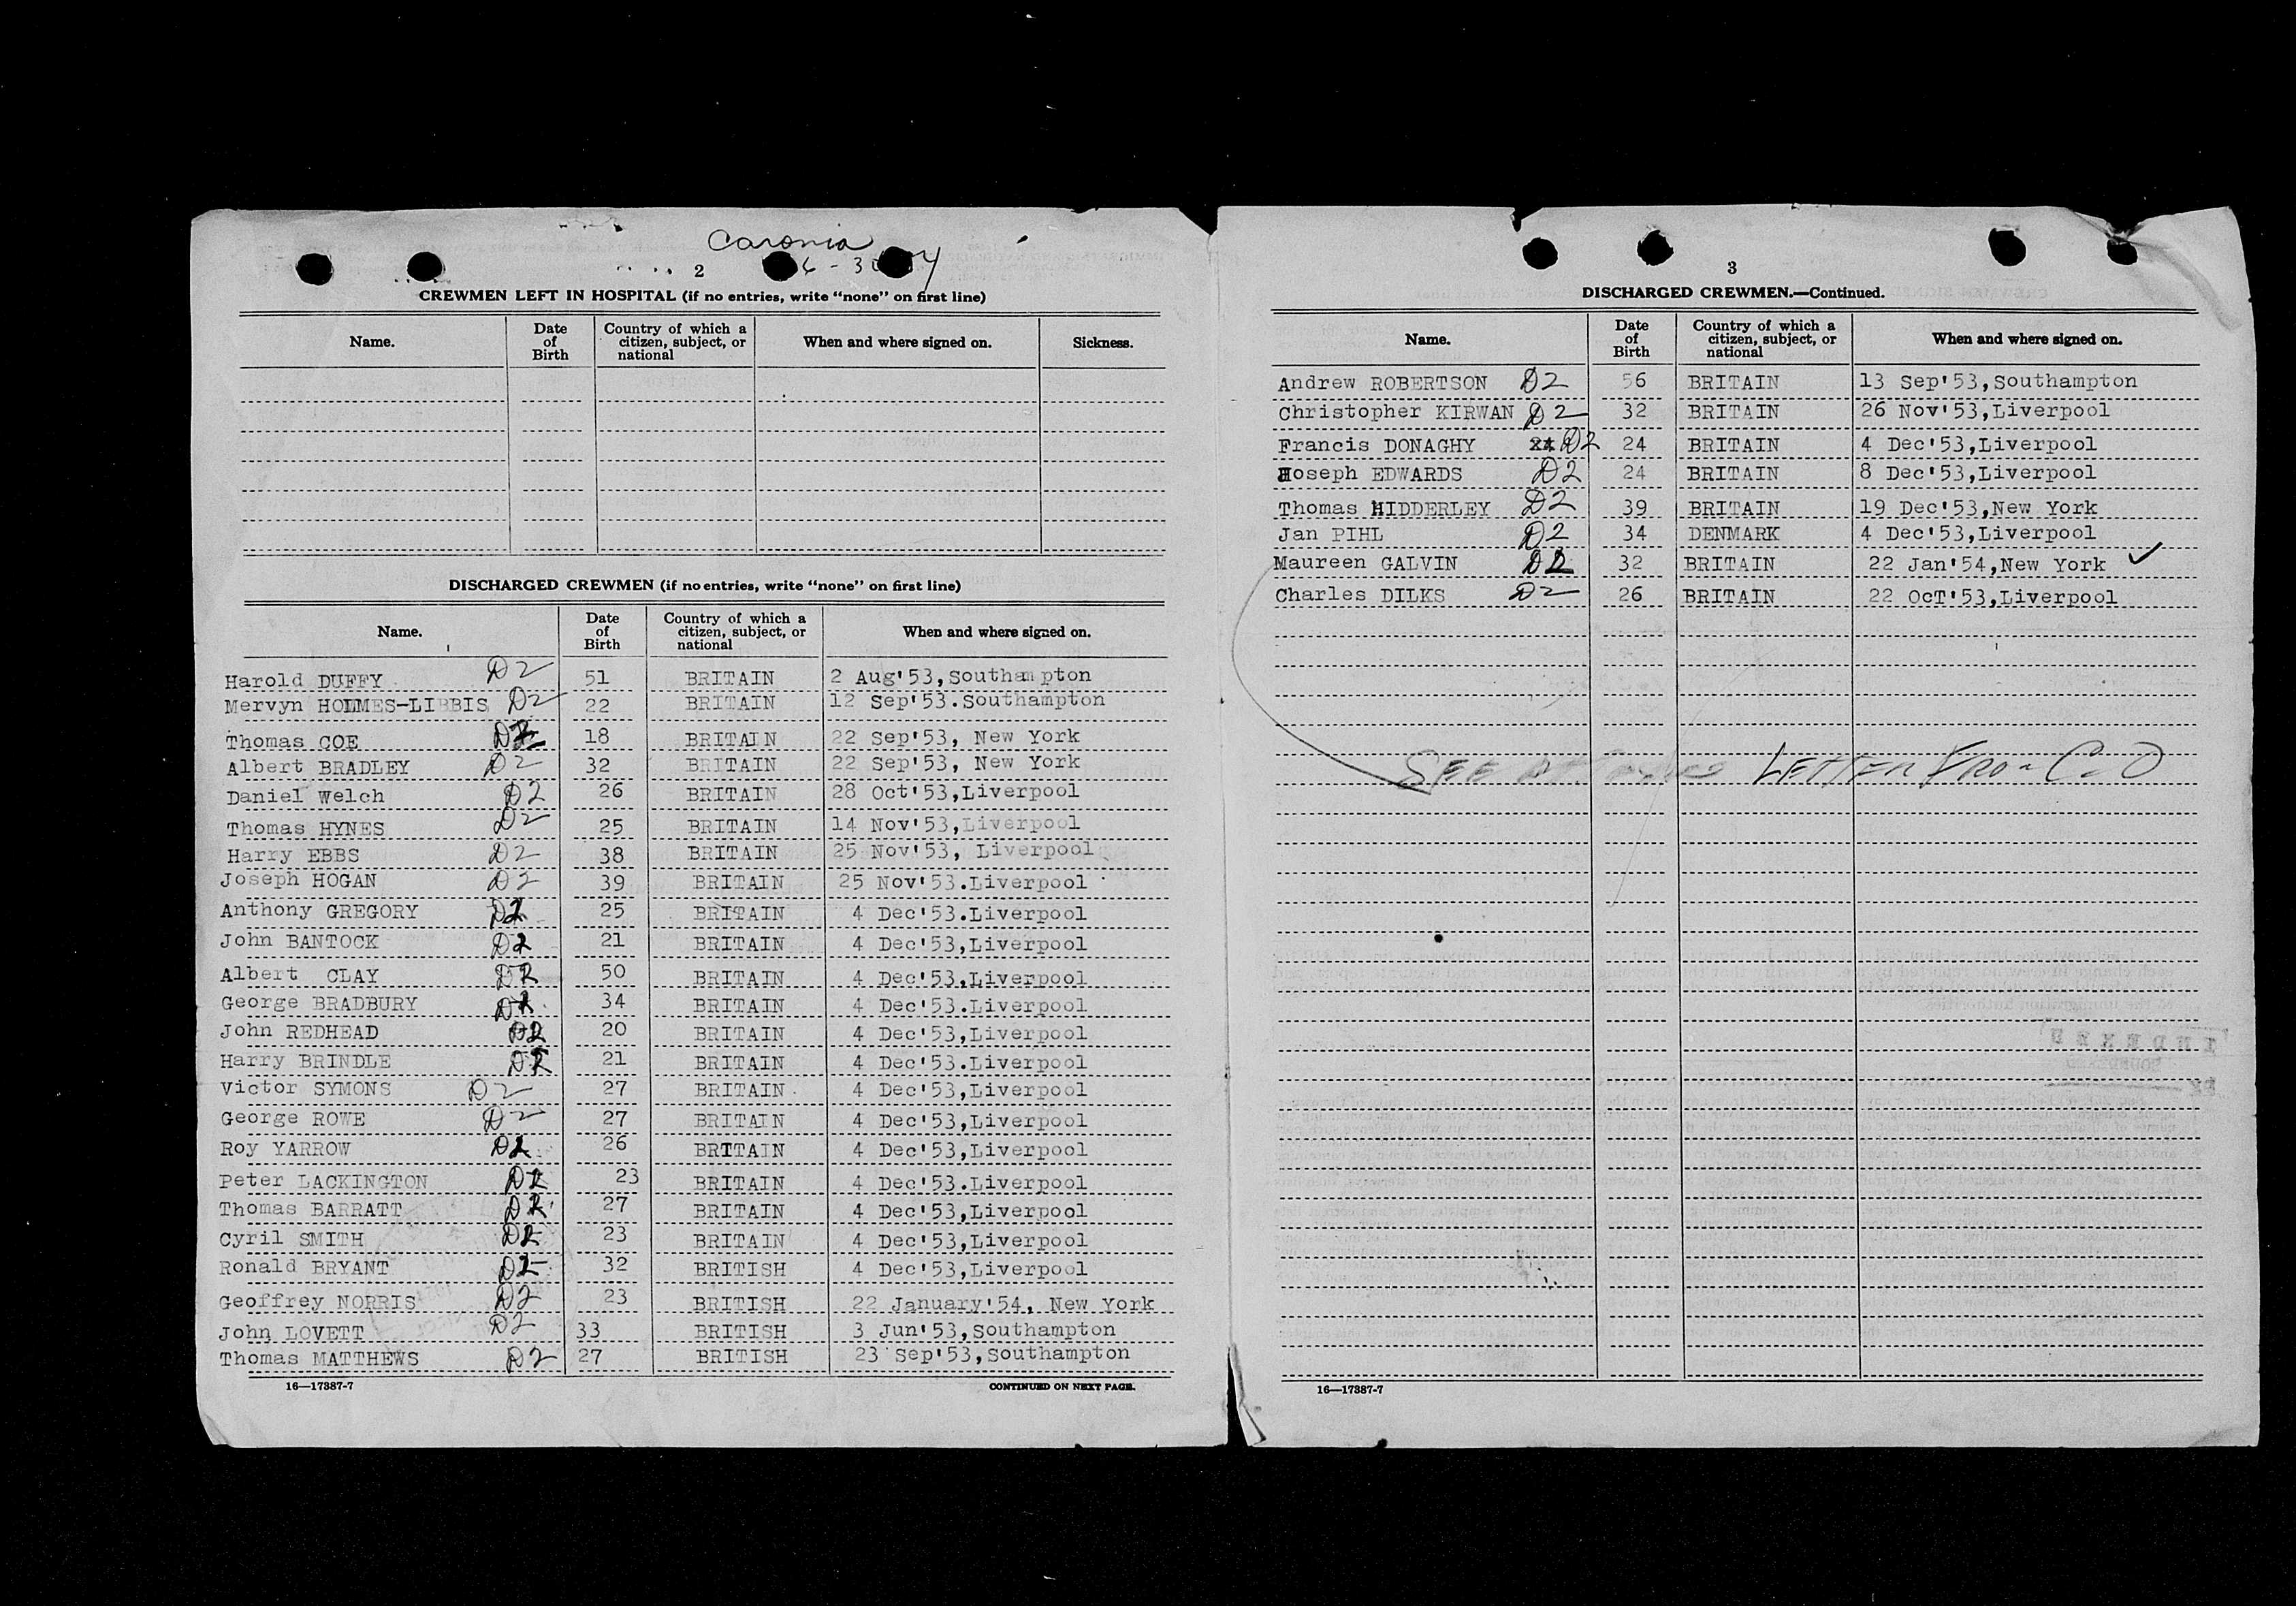 Caronia
2
CREWMEN LEFT IN HOSPITAL (if no entries, write "none" on first line)
Name. Date of Birth Country of which a citizen, subject, or national When and where signed on. Sickness.
DISCHARGED CREWMEN (if no entries, write "none" on first line)
Name. Date of Birth Country of which a citizen, subject, or national When and where signed on.
Harold DUFFY D2 51 BRITAIN 2 Aug'53,Southampton
Mervyn HOLMES-LIBBIS D2 22 BRITAIN 12 Sep'53.Southampton
Thomas COE D2 18 BRITAIN 22 Sep'53, New York
Albert BRADLEY D2 32 BRITAIN 22 Sep'53, New York
Daniel Welch D2 26 BRITAIN 28 Oct'53,Liverpool
Thomas HYNES D2 25 BRITAIN 14 Nov'53,Liverpool
Harry EBBS D2 38 BRITAIN 25 Nov'53, Liverpool
Joseph HOGAN D2 39 BRITAIN 25 Nov'53.Liverpool
Anthony GREGORY D2 25 BRITAIN 4 Dec'53.Liverpool
John BANTOCK D2 21 BRITAIN 4 Dec'53,Liverpool
Albert CLAY D2 50 BRITAIN 4 Dec'53,Liverpool
George BRADBURY D2 34 BRITAIN 4 Dec'53.Liverpool
John REDHEAD D2 20 BRITAIN 4 Dec'53,Liverpool
Harry BRINDLE D2 21 BRITAIN 4 Dec'53.Liverpool
Victor SYMONS D2 27 BRITAIN 4 Dec'53,Liverpool
George ROWE D2 27 BRITAIN 4 Dec'53,Liverpool
Roy YARROW D2 26 BRITAIN 4 Dec'53,Liverpool
Peter LACKINGTON D2 23 BRITAIN 4 Dec'53.Liverpool
Thomas BARRATT D2 27 BRITAIN 4 Dec'53,Liverpool
Cyril SMITH D2 23 BRITAIN 4 Dec'53,Liverpool
Ronald BRYANT D2 32 BRITISH 4 Dec'53,Liverpool
Geoffrey NORRIS D2 23 BRITISH 22 January'54, New York
John LOVETT D2 33 BRITISH 3 Jun'53,Southampton
Thomas MATTHEWS D2 27 BRITISH 23 Sep'53,Southampton
16—17387-7 CONTINUED ON NEXT PAGE.
3
DISCHARGED CREWMEN.—Continued.
Name. Date of Birth Country of which a citizen, subject, or national When and where signed on.
Andrew ROBERTSON D2 56 BRITAIN 13 Sep'53,Southampton
Christopher KIRWAN D2 32 BRITAIN 26 Nov'53,Liverpool
Francis DONAGHY D2 24 BRITAIN 4 Dec'53,Liverpool
Hoseph EDWARDS D2 24 BRITAIN 8 Dec'53,Liverpool
Thomas HIDDERLEY D2 39 BRITAIN 19 Dec'53,New York
Jan PIHL D2 34 DENMARK 4 Dec'53,Liverpool
Maureen GALVIN D2 32 BRITAIN 22 Jan'54,New York ✓
Charles DILKS D2 26 BRITAIN 22 OcT'53,Liverpool
SEE LETTER FROM C.O
16—17387-7